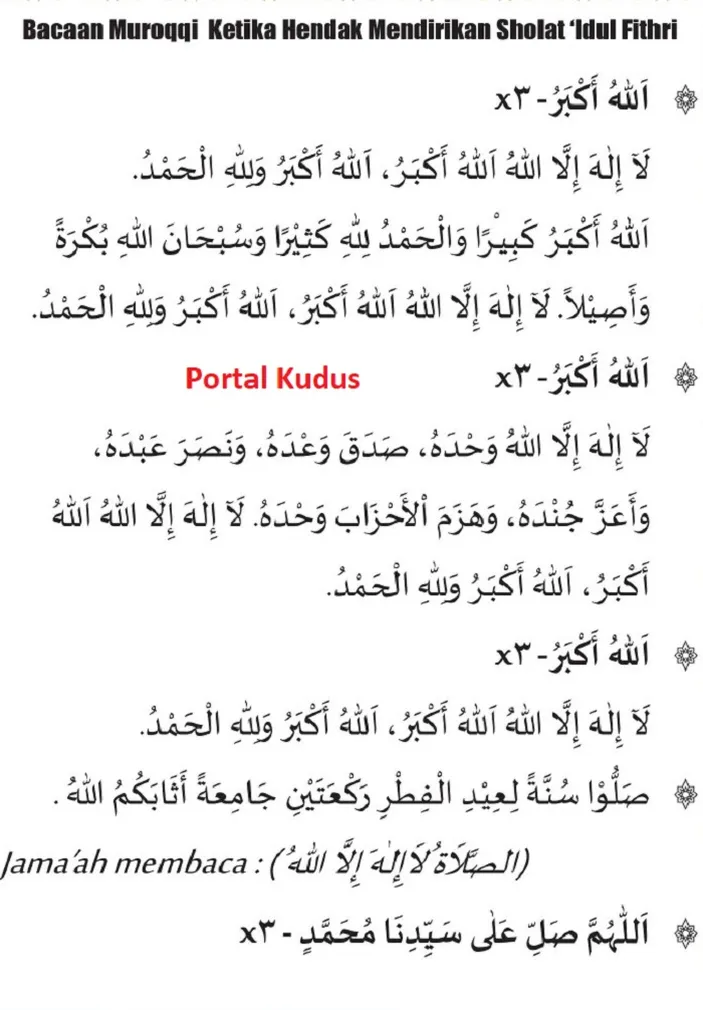 Bacaan Muroqqi Ketika Hendak Mendirikan Sholat ‘Idul Fithri
اَللهُ أَكْبَرُ - x٣
لَآ إِلٰهَ إِلَّا اللهُ اَللهُ أَكْبَرُ، اَللهُ أَكْبَرُ وَلِلّٰهِ الْحَمْدُ.
اَللهُ أَكْبَرُ كَبِيْرًا وَالْحَمْدُ لِلّٰهِ كَثِيْرًا وَسُبْحَانَ اللهِ بُكْرَةً
وَأَصِيْلاً. لَآ إِلٰهَ إِلَّا اللهُ اَللهُ أَكْبَرُ، اَللهُ أَكْبَرُ وَلِلّٰهِ الْحَمْدُ.
اَللهُ أَكْبَرُ - x٣ Portal Kudus
لَآ إِلٰهَ إِلَّا اللهُ وَحْدَهُ، صَدَقَ وَعْدَهُ، وَنَصَرَ عَبْدَهُ،
وَأَعَزَّ جُنْدَهُ، وَهَزَمَ اْلأَحْزَابَ وَحْدَهُ. لَآ إِلٰهَ إِلَّا اللهُ اَللهُ
أَكْبَرُ، اَللهُ أَكْبَرُ وَلِلّٰهِ الْحَمْدُ.
اَللهُ أَكْبَرُ - x٣
لَآ إِلٰهَ إِلَّا اللهُ اَللهُ أَكْبَرُ، اَللهُ أَكْبَرُ وَلِلّٰهِ الْحَمْدُ.
صَلُّوْا سُنَّةً لِعِيْدِ الْفِطْرِ رَكْعَتَيْنِ جَامِعَةً أَثَابَكُمُ اللهُ .
Jama’ah membaca : (الصَّلَاةُ لَا إِلٰهَ إِلَّا اللهُ)
اَللّٰهُمَّ صَلِّ عَلٰى سَيِّدِنَا مُحَمَّدٍ - x٣